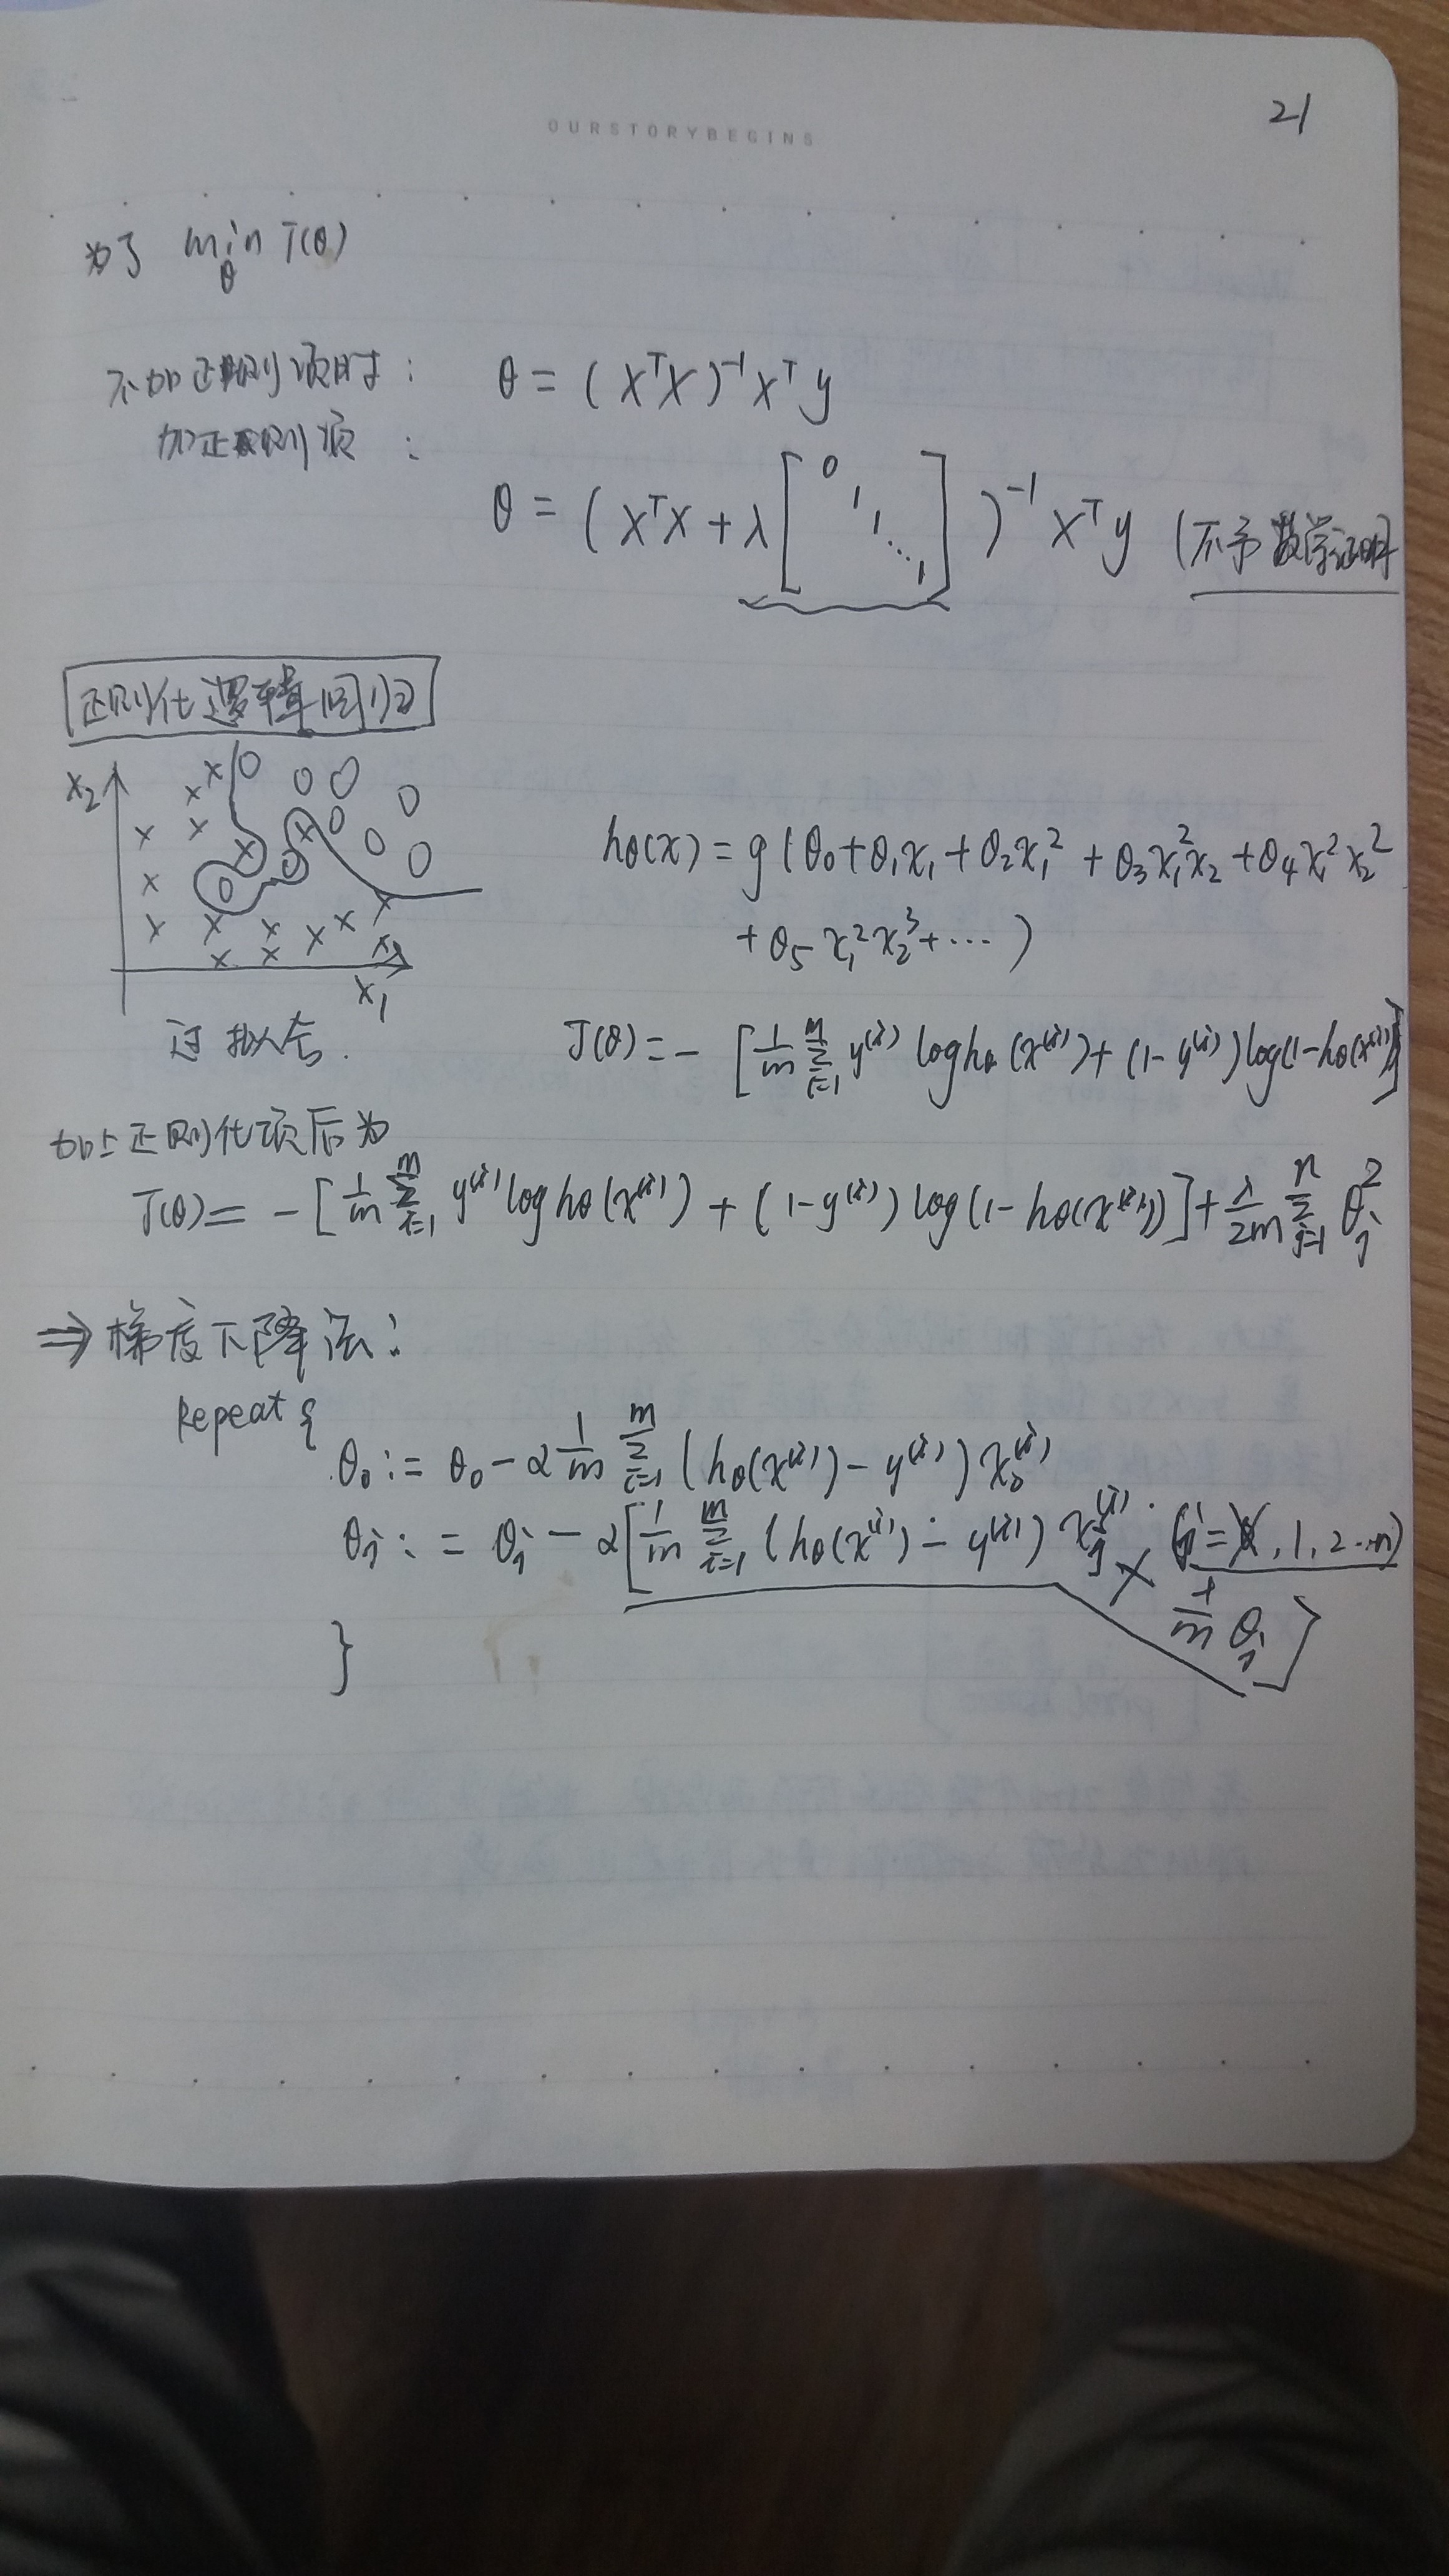 21
OURSTORYBEGINS
为了 min J(θ)
θ
不加正则项时: θ = (XᵀX)⁻¹Xᵀy
加正则项 :
θ = (XᵀX + λ[0 1 1 ⋱ 1])⁻¹Xᵀy (不予数学证明
正则化逻辑回归
x₂
x₁
hθ(x) = g(θ₀+θ₁x₁+θ₂x₁²+θ₃x₁²x₂+θ₄x₁²x₂²
+θ₅x₁²x₂³+⋯)
过拟合.
J(θ)=-[1/m Σᵢ₌₁ᵐ y⁽ⁱ⁾ log hθ(x⁽ⁱ⁾)+(1-y⁽ⁱ⁾)log(1-hθ(x⁽ⁱ⁾)]
加上正则化项后为
J(θ)=-[1/m Σᵢ₌₁ᵐ y⁽ⁱ⁾ log hθ(x⁽ⁱ⁾)+(1-y⁽ⁱ⁾)log(1-hθ(x⁽ⁱ⁾))]+λ/2m Σⱼ₌₁ⁿ θⱼ²
⇒梯度下降法:
Repeat {
θ₀ := θ₀-α 1/m Σᵢ₌₁ᵐ (hθ(x⁽ⁱ⁾)-y⁽ⁱ⁾)x₀⁽ⁱ⁾
θⱼ := θⱼ-α[1/m Σᵢ₌₁ᵐ (hθ(x⁽ⁱ⁾)-y⁽ⁱ⁾)xⱼ⁽ⁱ⁾ (j= ,1,2..n)
m θⱼ]
}